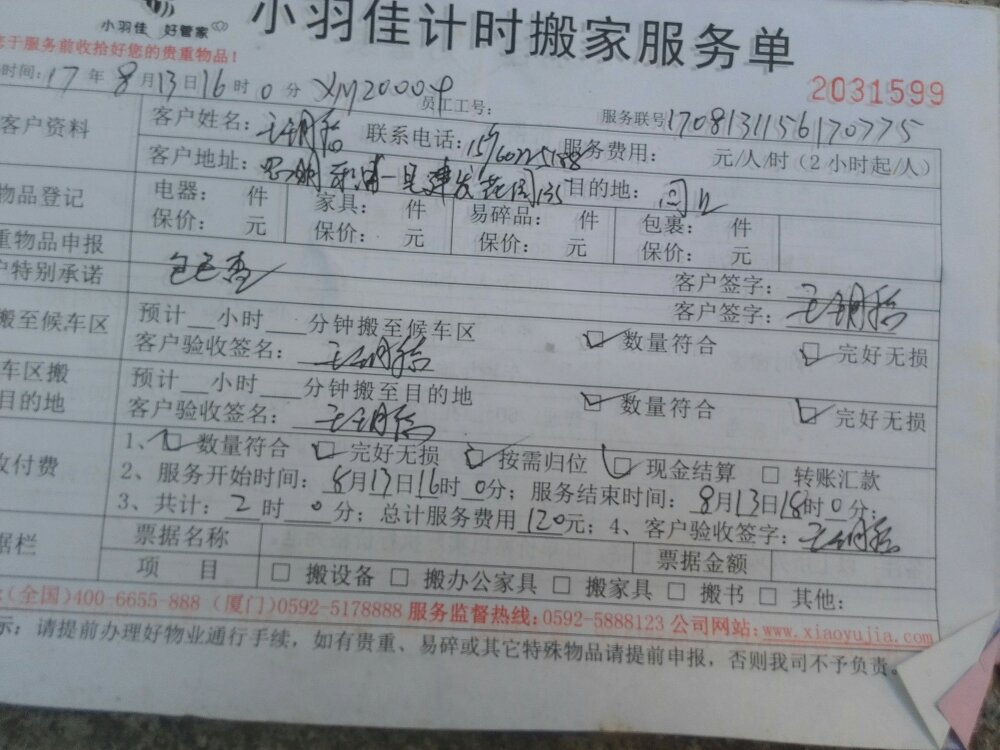 小羽佳 好管家
小羽佳计时搬家服务单
于服务前收拾好您的贵重物品！
2031599
时间：17年8月13日16时0分 XM20004 员工工号： 服务联号1708131156170775
客户资料 客户姓名： 联系电话： 服务费用： 元/人/时（2小时起/人）
客户地址： 目的地：
物品登记 电器： 件 家具： 件 易碎品： 件 包裹： 件
保价： 元 保价： 元 保价： 元 保价： 元
重物品申报 客户签字：
户特别承诺 客户签字：
搬至候车区 预计__小时___分钟搬至候车区
客户验收签名： 数量符合 完好无损
车区搬 预计__小时___分钟搬至目的地
目的地 客户验收签名： 数量符合 完好无损
收付费 1、 数量符合 完好无损 按需归位 现金结算 □ 转账汇款
2、服务开始时间：8月13日16时0分；服务结束时间：8月13日18时0分；
3、共计：2时0分；总计服务费用120元；4、客户验收签字：
据栏 票据名称 票据金额
项 目 □ 搬设备 □ 搬办公家具 □ 搬家具 □ 搬书 □ 其他：
(全国)400-6655-888 (厦门)0592-5178888 服务监督热线:0592-5888123 公司网站:www.xiaoyujia.com
示：请提前办理好物业通行手续，如有贵重、易碎或其它特殊物品请提前申报，否则我司不予负责。